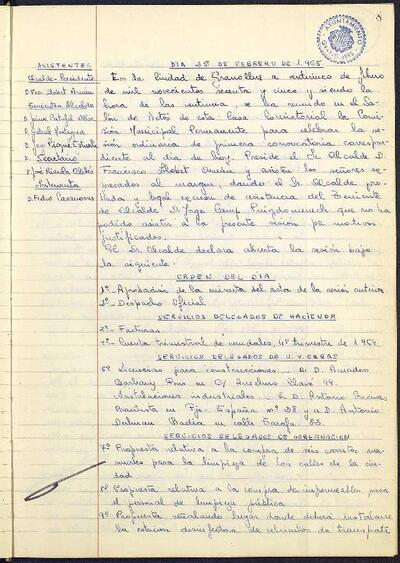 8
AYUNTAMIENTO
ASISTENTES
DIA 25 DE FEBRERO DE 1.965
Alcalde-Presidente
D. Fco. Llobet Arnán
Tenientes Alcalde
D. Jaime
D. José
Secretario
Interventor
D. Pedro
En la Ciudad de Granollers a veinticinco de Febrero
de mil novecientos sesenta y cinco y siendo la
hora de las veintiuna, se ha reunido en el Sa-
lón de Actos de esta Casa Consistorial la Comi-
sión Municipal Permanente para celebrar la se-
sión ordinaria de primera convocatoria correspon-
diente al día de hoy. Preside el Sr. Alcalde D.
Francisco Llobet Arnán y asisten los señores ex-
presados al margen, dando el Sr. Alcalde pro-
bada y legal excusa de asistencia del Teniente
de Alcalde D. Jorge Camp Puigdomenech que no ha
podido asistir a la presente sesión por motivos
justificados.
El Sr. Alcalde declara abierta la sesión bajo
la siguiente:
ORDEN DEL DIA
1º- Aprobación de la minuta del acta de la sesión anterior
2º- Despacho Oficial
SERVICIOS DELEGADOS DE HACIENDA
Facturas
4º- Cuenta trimestral de caudales, 4º trimestre de 1.964
SERVICIOS DELEGADOS DE U. Y OBRAS
Licencias para construcciones.- a D. Amadeo
Barbany Pons en C/ Anselmo Clavé 44.
Instalaciones industriales.- a D. Antonio
Bautista en Pje. España nº 38 y a D. Antonio
Dalmau Badia en calle Tarafa 83.
SERVICIOS DELEGADOS DE GOBERNACION
7º Propuesta relativa a la compra de seis carritos ma-
nuales para la limpieza de las calles de la ciu-
dad
8º Propuesta relativa a la compra de impermeables para
el personal de limpieza pública
9º- Propuesta señalando lugar donde deberá instalarse
la estación desinfectora de vehículos de transporte